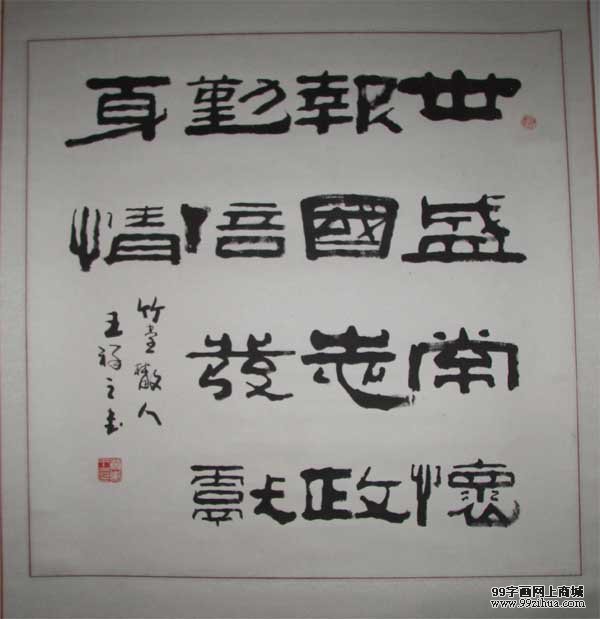 世盛常懷
報國志政
勤倍發獻
身情
竹堂散人
王祥之書
99字画网上商城
www.99zihua.com